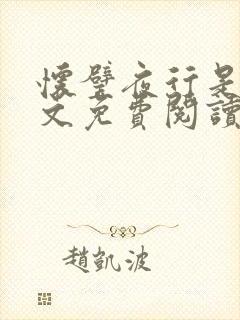 懷璧夜行是
文免費閱讀
趙凱波